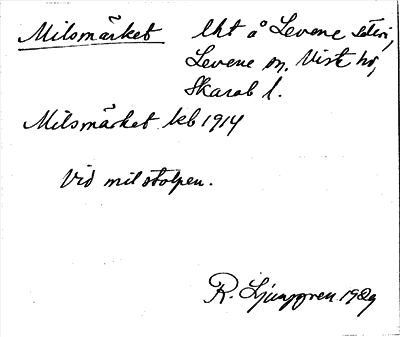 Milsmärket lht å Levene säteri,
Levene sn, Viste hd,
Skarab l.
Milsmärket kb 1914
Vid milstolpen.
R. Ljunggren 1929